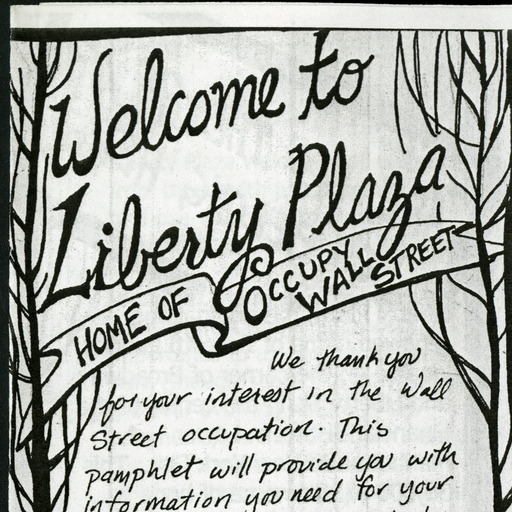 Welcome to
Liberty Plaza
HOME OF OCCUPY
WALL STREET
We thank you
for your interest in the Wall
Street occupation. This
pamphlet will provide you with
information you need for your